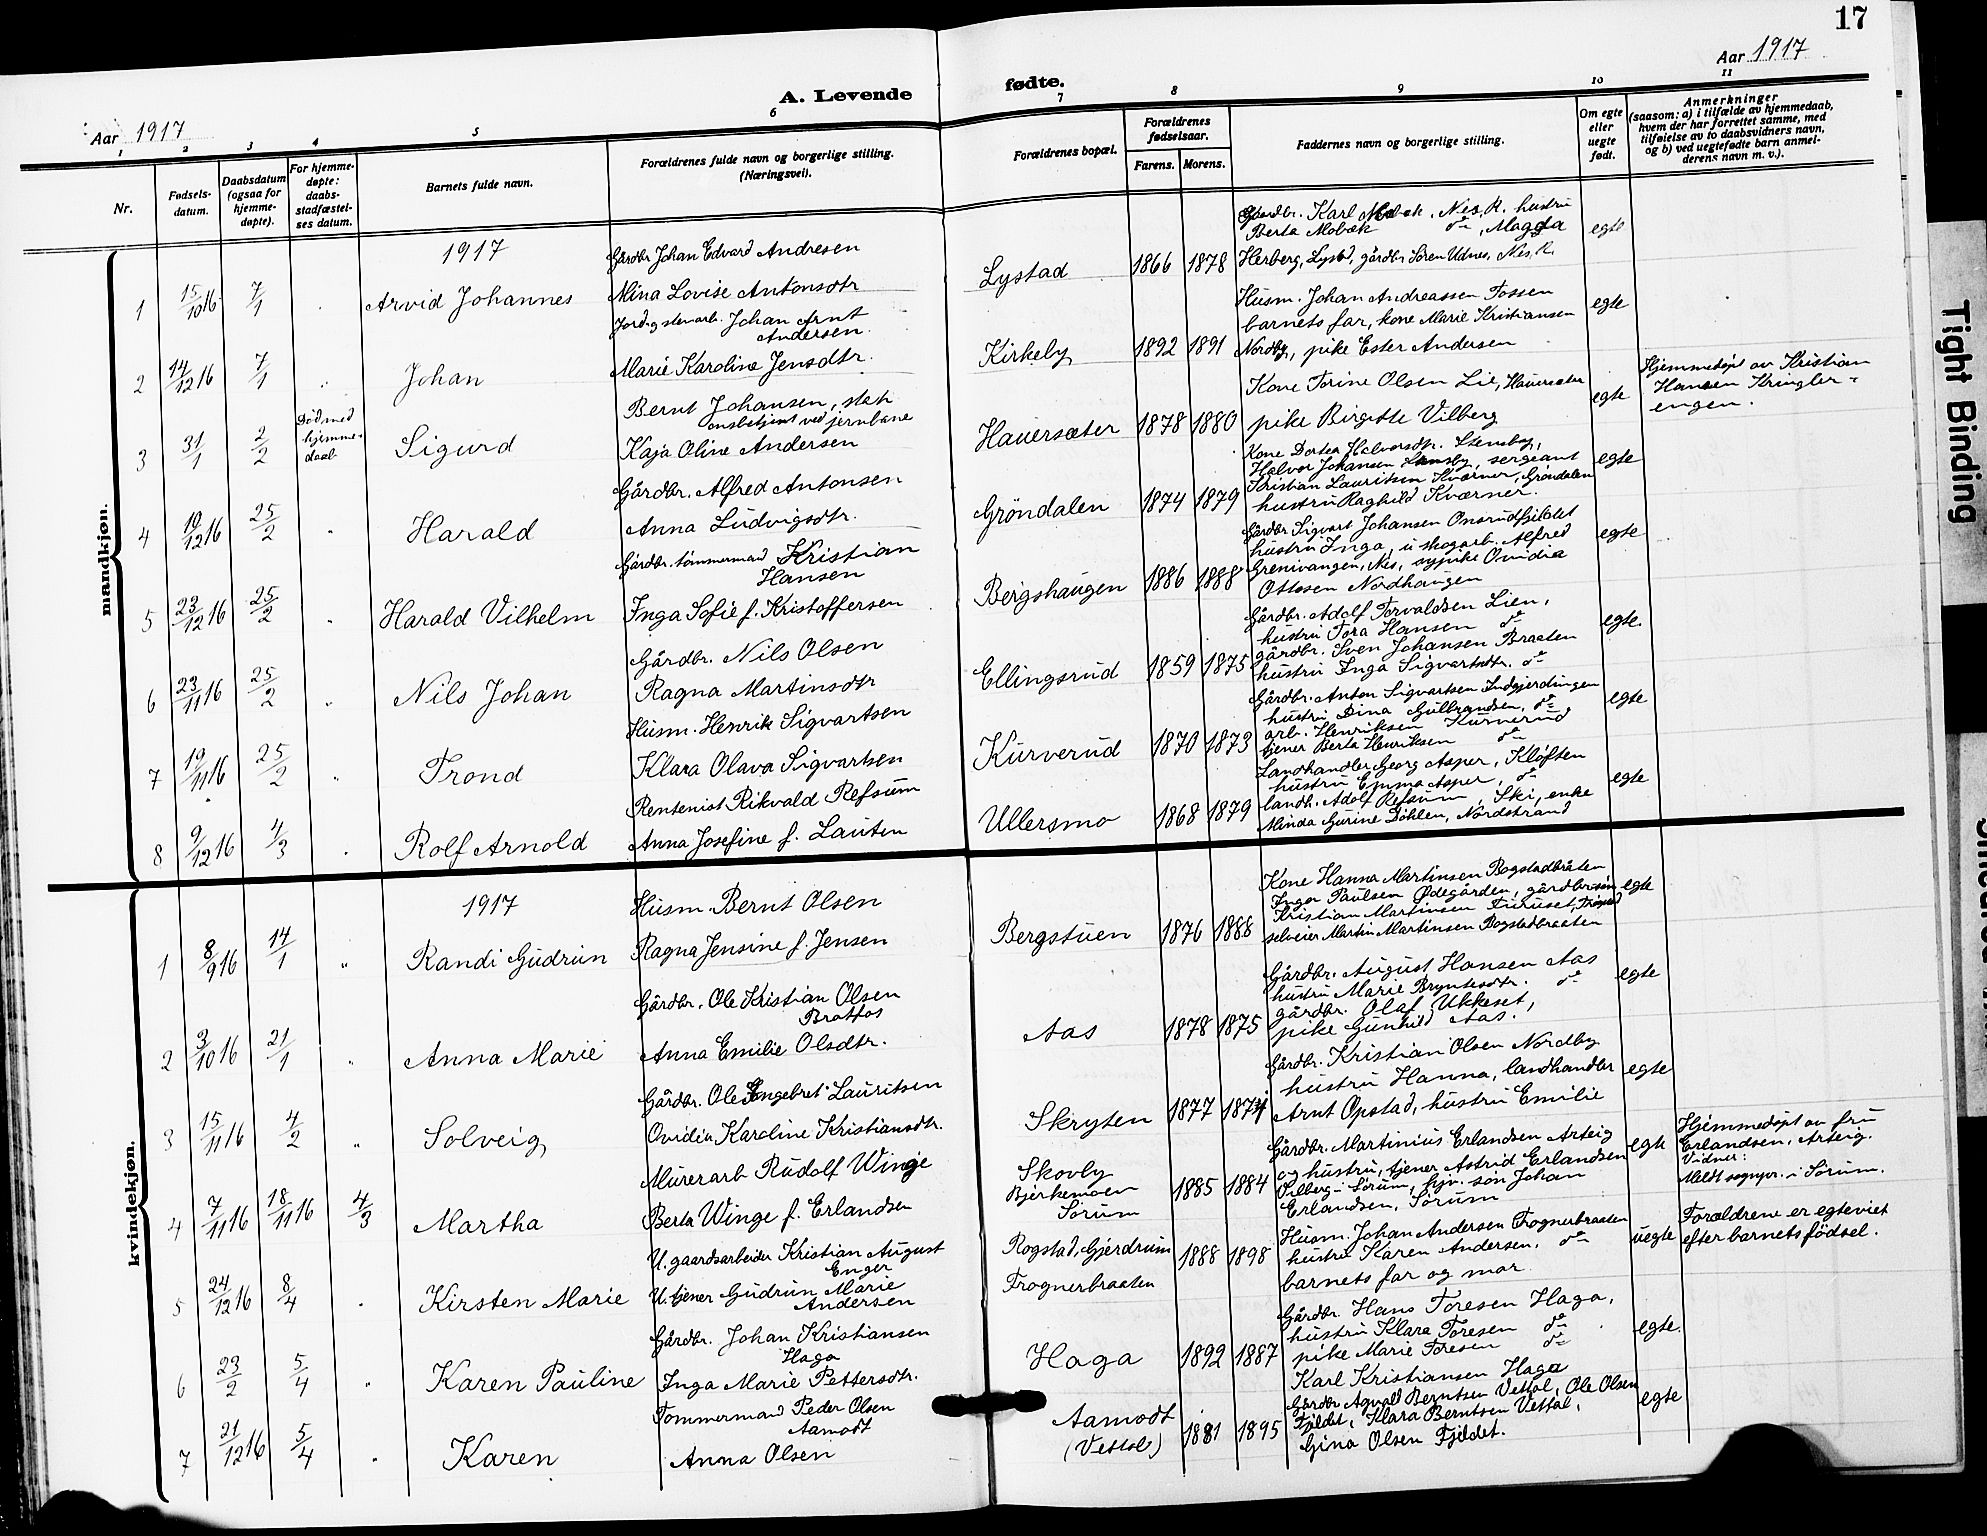 17
Aar 1917
A. Levende
fødte.
Aar 1917
1 2 3 4 5 6 7 8 9 10 11
Nr.
Fødsels-
datum.
Daabsdatum
(ogsaa for
hjemme-
døpte).
For hjemme-
døpte:
daabs-
stadfæstel-
ses datum.
Barnets fulde navn.
Forældrenes fulde navn og borgerlige stilling.
(Næringsvei).
Forældrenes bopæl.
Forældrenes
fødselsaar.
Farens. Morens.
Faddernes navn og borgerlige stilling.
Om egte
eller
uegte
født.
Anmerkninger
(saasom: a) i tilfælde av hjemmedaab,
hvem der har forrettet samme, med
tilføielse av to daabsvidners navn,
og b) ved uegtefødte barn anmel-
derens navn m. v.).
mandkjøn.
1917
1 15/10 16 7/1 Arvid Johannes
Gårdbr. Johan Edvard Andresen
Mina Lovise Antonsdtr
Lystad 1866 1878
Gårdbr. Karl Mobæk, Nes, R. hustru
Berta Mobæk do, Magda
Herberg, Lyst, gårdbr. Søren Udnes, Nes, R.
egte
2 14/12 16 7/1 Johan
Jord. og stenarb. Johan Arnt
Andersen.
Marie Karoline Jensdtr.
Kirkeby 1892 1891
Husm. Johan Andreassen Fossen
barnets far, kone Marie Kristiansen
Nordby, pike Ester Andersen
egte
3 31/1 2/2 Død med
hjemme-
daab
Sigurd
Bernt Johansen, stati
onsbetjent ved jernbane
Kaja Oline Andersen
Hauersæter 1878 1880
Kone Torine Olsen Lie, Hauersæter
pike Birgitte Vilberg
egte
Hjemmedøpt av Kristian
Hansen Kringler-
engen.
4 19/12 16 25/2 Harald
Gårdbr. Alfred Antonsen
Anna Ludvigsdtr.
Grøndalen 1874 1879
Kone Dortea Halvorsdtr. Stensby,
Halvor Johansen Stensby, sergeant
Kristian Lauritsen Kværner, Grøndalen
hustru Raghild Kværner.
egte
5 23/12 16 25/2 Harald Vilhelm
Gårdbr. tømmermand Kristian
Hansen
Inga Sofie f. Kristoffersen
Bergshaugen 1886 1888
Gårdbr. Sigvart Johansen Onsrudfjeldet
hustru Inga, u skogarb. Alfred
Grenivangen, Nes, sypike Ovidia
Ottosen Nordhaugen
egte
6 23/11 16 25/2 Nils Johan
Gårdbr. Nils Olsen
Ragna Martinsdtr
Ellingsrud 1859 1875
Gårdbr. Adolf Torvaldsen Lien,
hustru Tora Hansen do
gårdbr. Sven Johansen Braaten
hustru Inga Sigvartsdtr. do
egte.
7 19/11 16 25/2 Trond
Husm. Henrik Sigvartsen
Klara Olava Sigvartsen
Kurverud 1870 1873
Gårdbr. Anton Sigvartsen Indgjerdingen
hustru Dina Gulbrandsen, do
arb. Henriksen Kurverud
tjener Berta Henriksen do
egte
8 9/12 16 4/3 Rolf Arnold
Rentenist Rikvald Refsum
Anna Josefine f. Lauten
Ullersmo 1868 1879
Landhandler Georg Asper, Kløften
hustru Emma Asper, do
landh. Adolf Refsum, Ski, enke
Minda Gurine Døhlen, Nordstrand
egte
kvindekjøn.
1917
1 8/9 16 14/1 Randi Gudrun
Husm. Bernt Olsen
Ragna Jensine f. Jensen
Bergstuen 1876 1888
Kone Hanna Martinsen Bogstadbråten
Inga Paulsen Ødegården, gårdbr.søn
Kristian Martinsen Furuset,
selveier Martin Martinsen Bogstadbraaten
egte
2 3/10 16 21/1 Anna Marie
Gårdbr. Ole Kristian Olsen
Brattos
Anna Emilie Olsdtr.
Aas 1878 1875
Gårdbr. August Hansen Aas
hustru Marie Bryntesdtr. do
gårdbr. Olaf Ukkeset,
pike Gunhild Aas.
egte
3 15/11 16 4/2 Solveig
Gårdbr. Ole Engebret Lauritsen
Ovidia Karoline Kristiansdtr.
Skryten 1877 1874
Gårdbr. Kristian Olsen Nordby
hustru Hanna, landhandler
Arnt Opstad, hustru Emilie
egte
4 7/11 16 18/11 16 4/3 Martha
Murerarb Rudolf Winge
Berta Winge f. Erlandsen
Skovly
Bjerkemoen
Sørum
1885 1884
Gårdbr. Martinius Erlandsen Arteig
og hustru, tjener Astrid Erlandsen
Vilberg i Sørum, hjv. søn Johan
Erlandsen, Sørum
egte
Hjemmedøpt av fru
Erlandsen, Arteig.
Vidner:
Meldt sognepr. i Sørum.
5 24/12 16 8/4 Kirsten Marie
U. gaardsarbeider Kristian August
Enger
U. tjener Gudrun Marie
Andersen
Rogstad, Gjerdrum
Trognerbraaten
1888 1898
Husm. Johan Andersen Trognerbraaten
hustru Karen Andersen, do
barnets far og mor.
uegte
Forældrene er egteviet
efter barnets fødsel.
6 23/2 5/4 Karen Pauline
Gårdbr. Johan Kristiansen
Haga
Inga Marie Pettersdtr.
Haga 1892 1887
Gårdbr. Hans Toresen Haga,
hustru Klara Toresen do
pike Marie Toresen do
Karl Kristiansen Haga
egte.
7 21/12 16 5/4 Karen
Tømmermand Peder Olsen
Aamodt
Anna Olsen
Aamodt
(Vettal)
1881 1895
Gårdbr. Agvald Berntsen Vettal, Ole Olsen
Fjeldet, Klara Berntsen Vettal,
Gina Olsen Fjeldet.
egte
Tight Binding